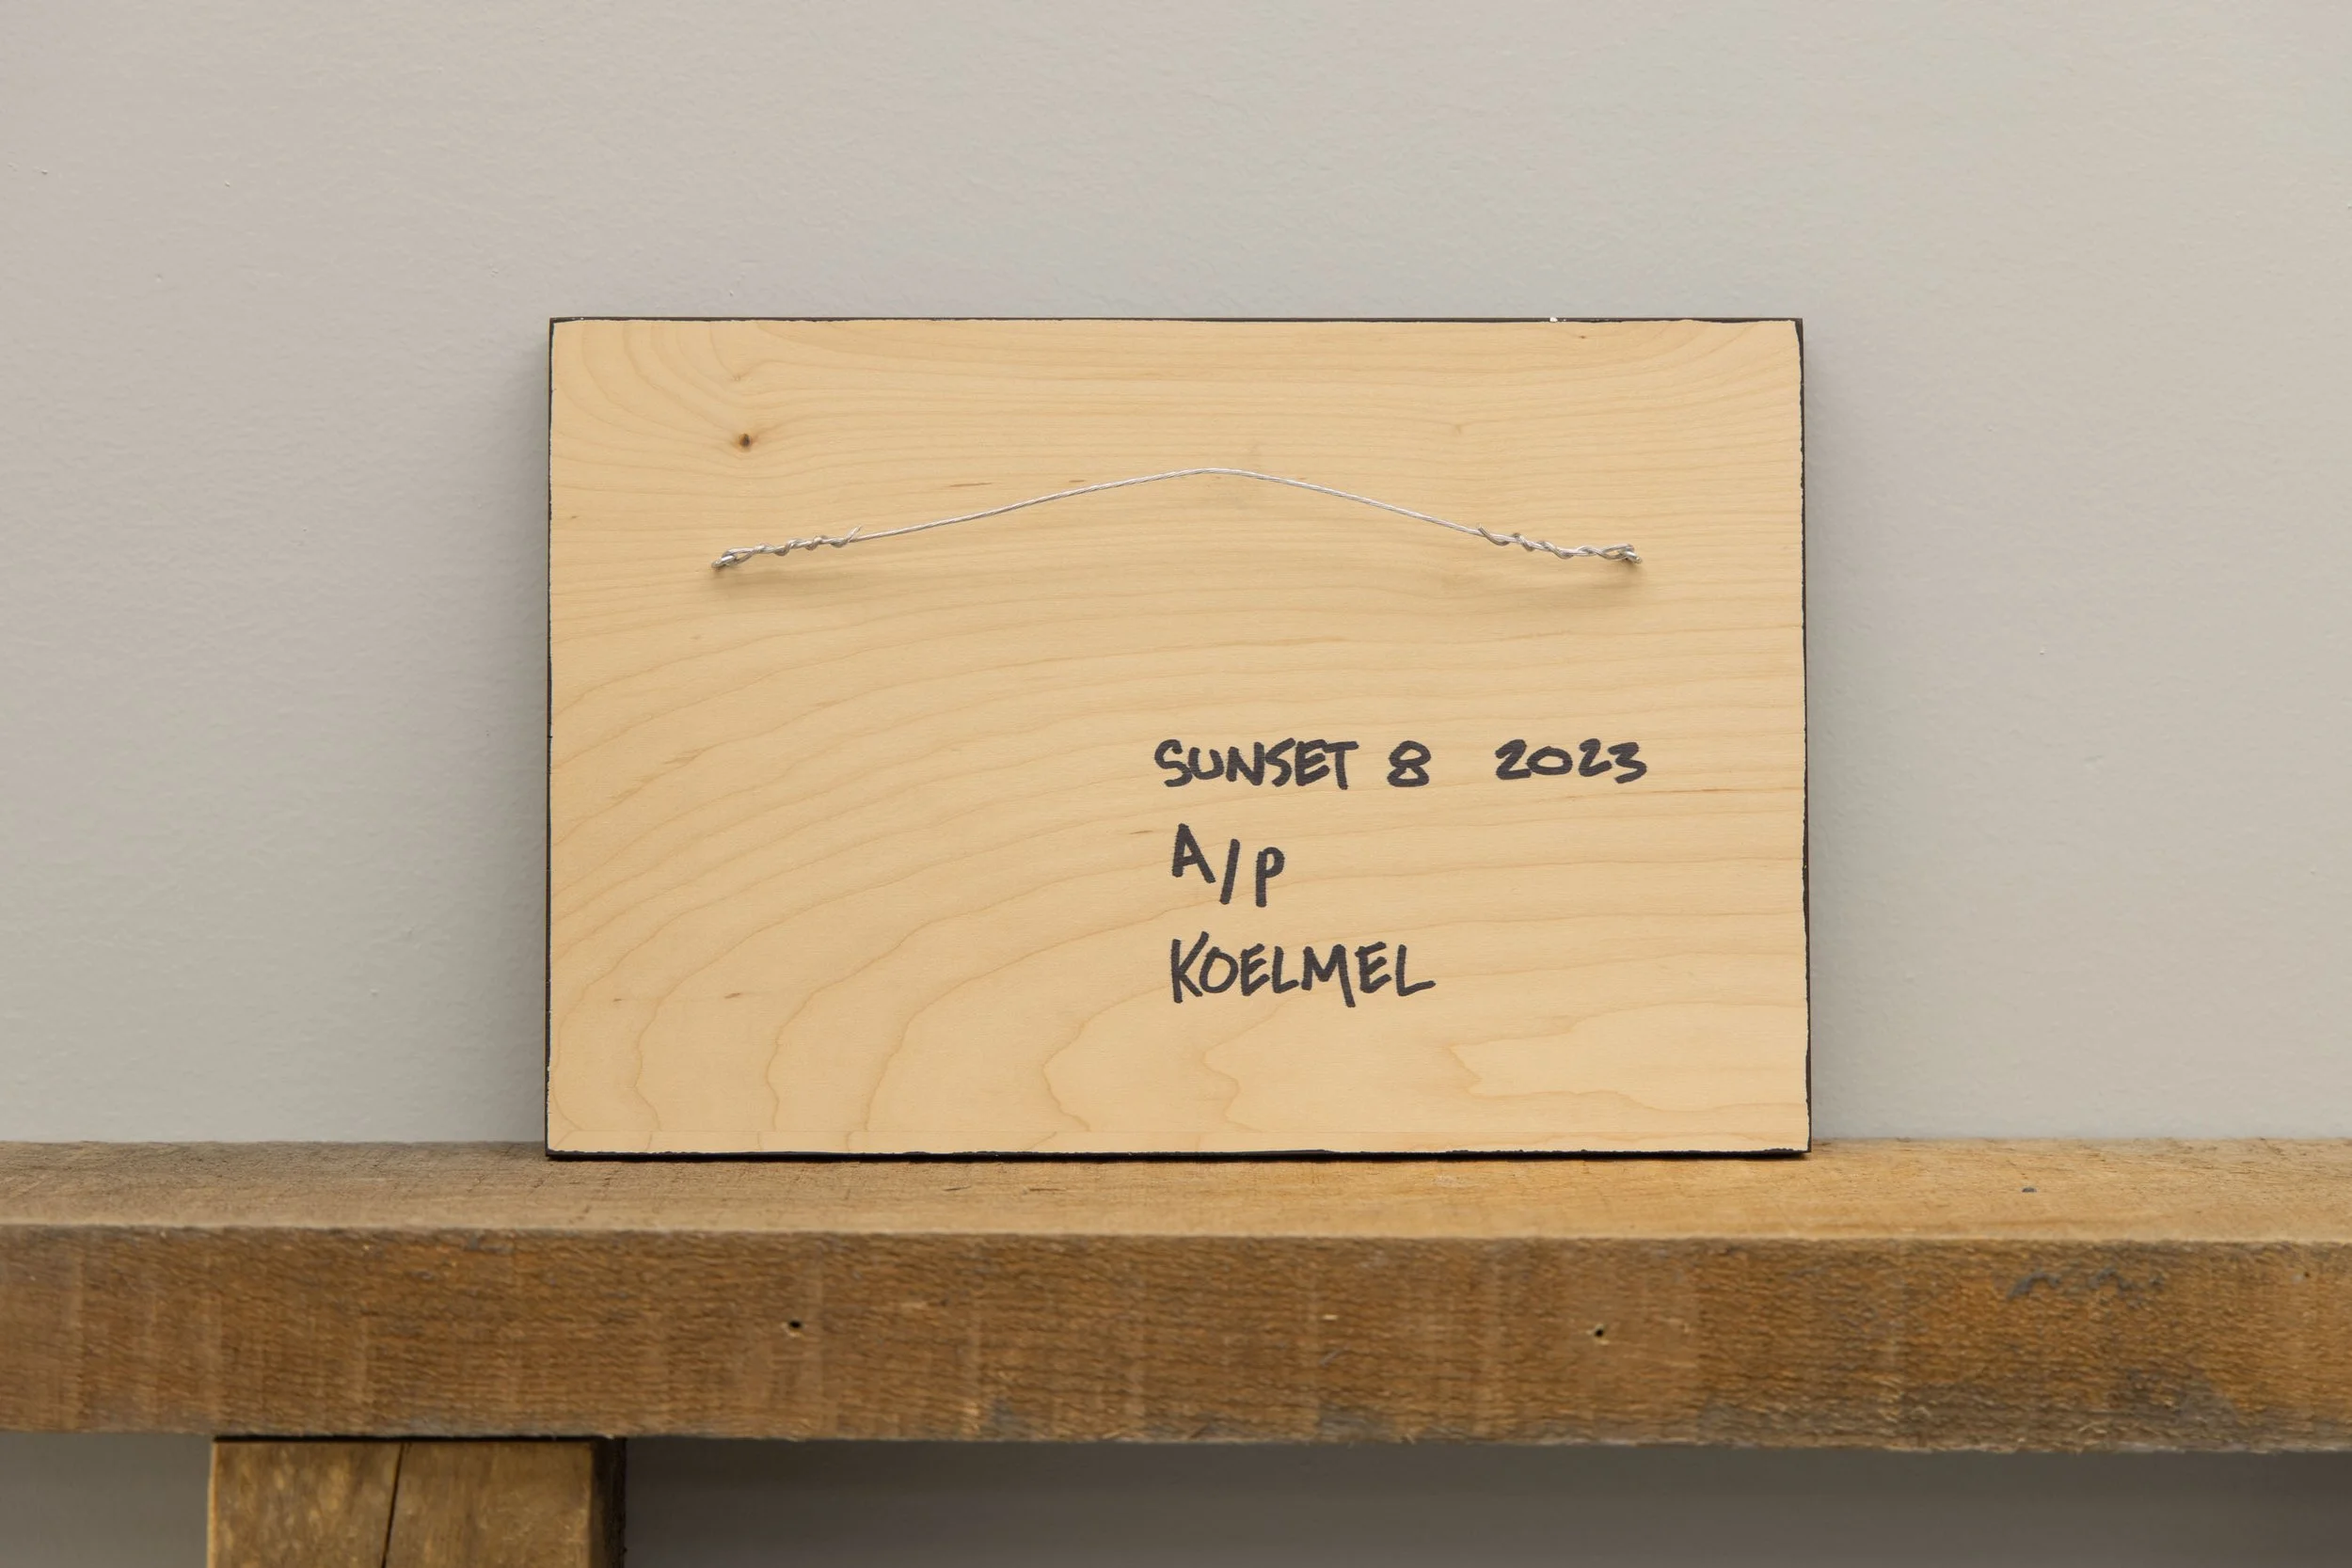 SUNSET 8 2023
A/P
KOELMEL